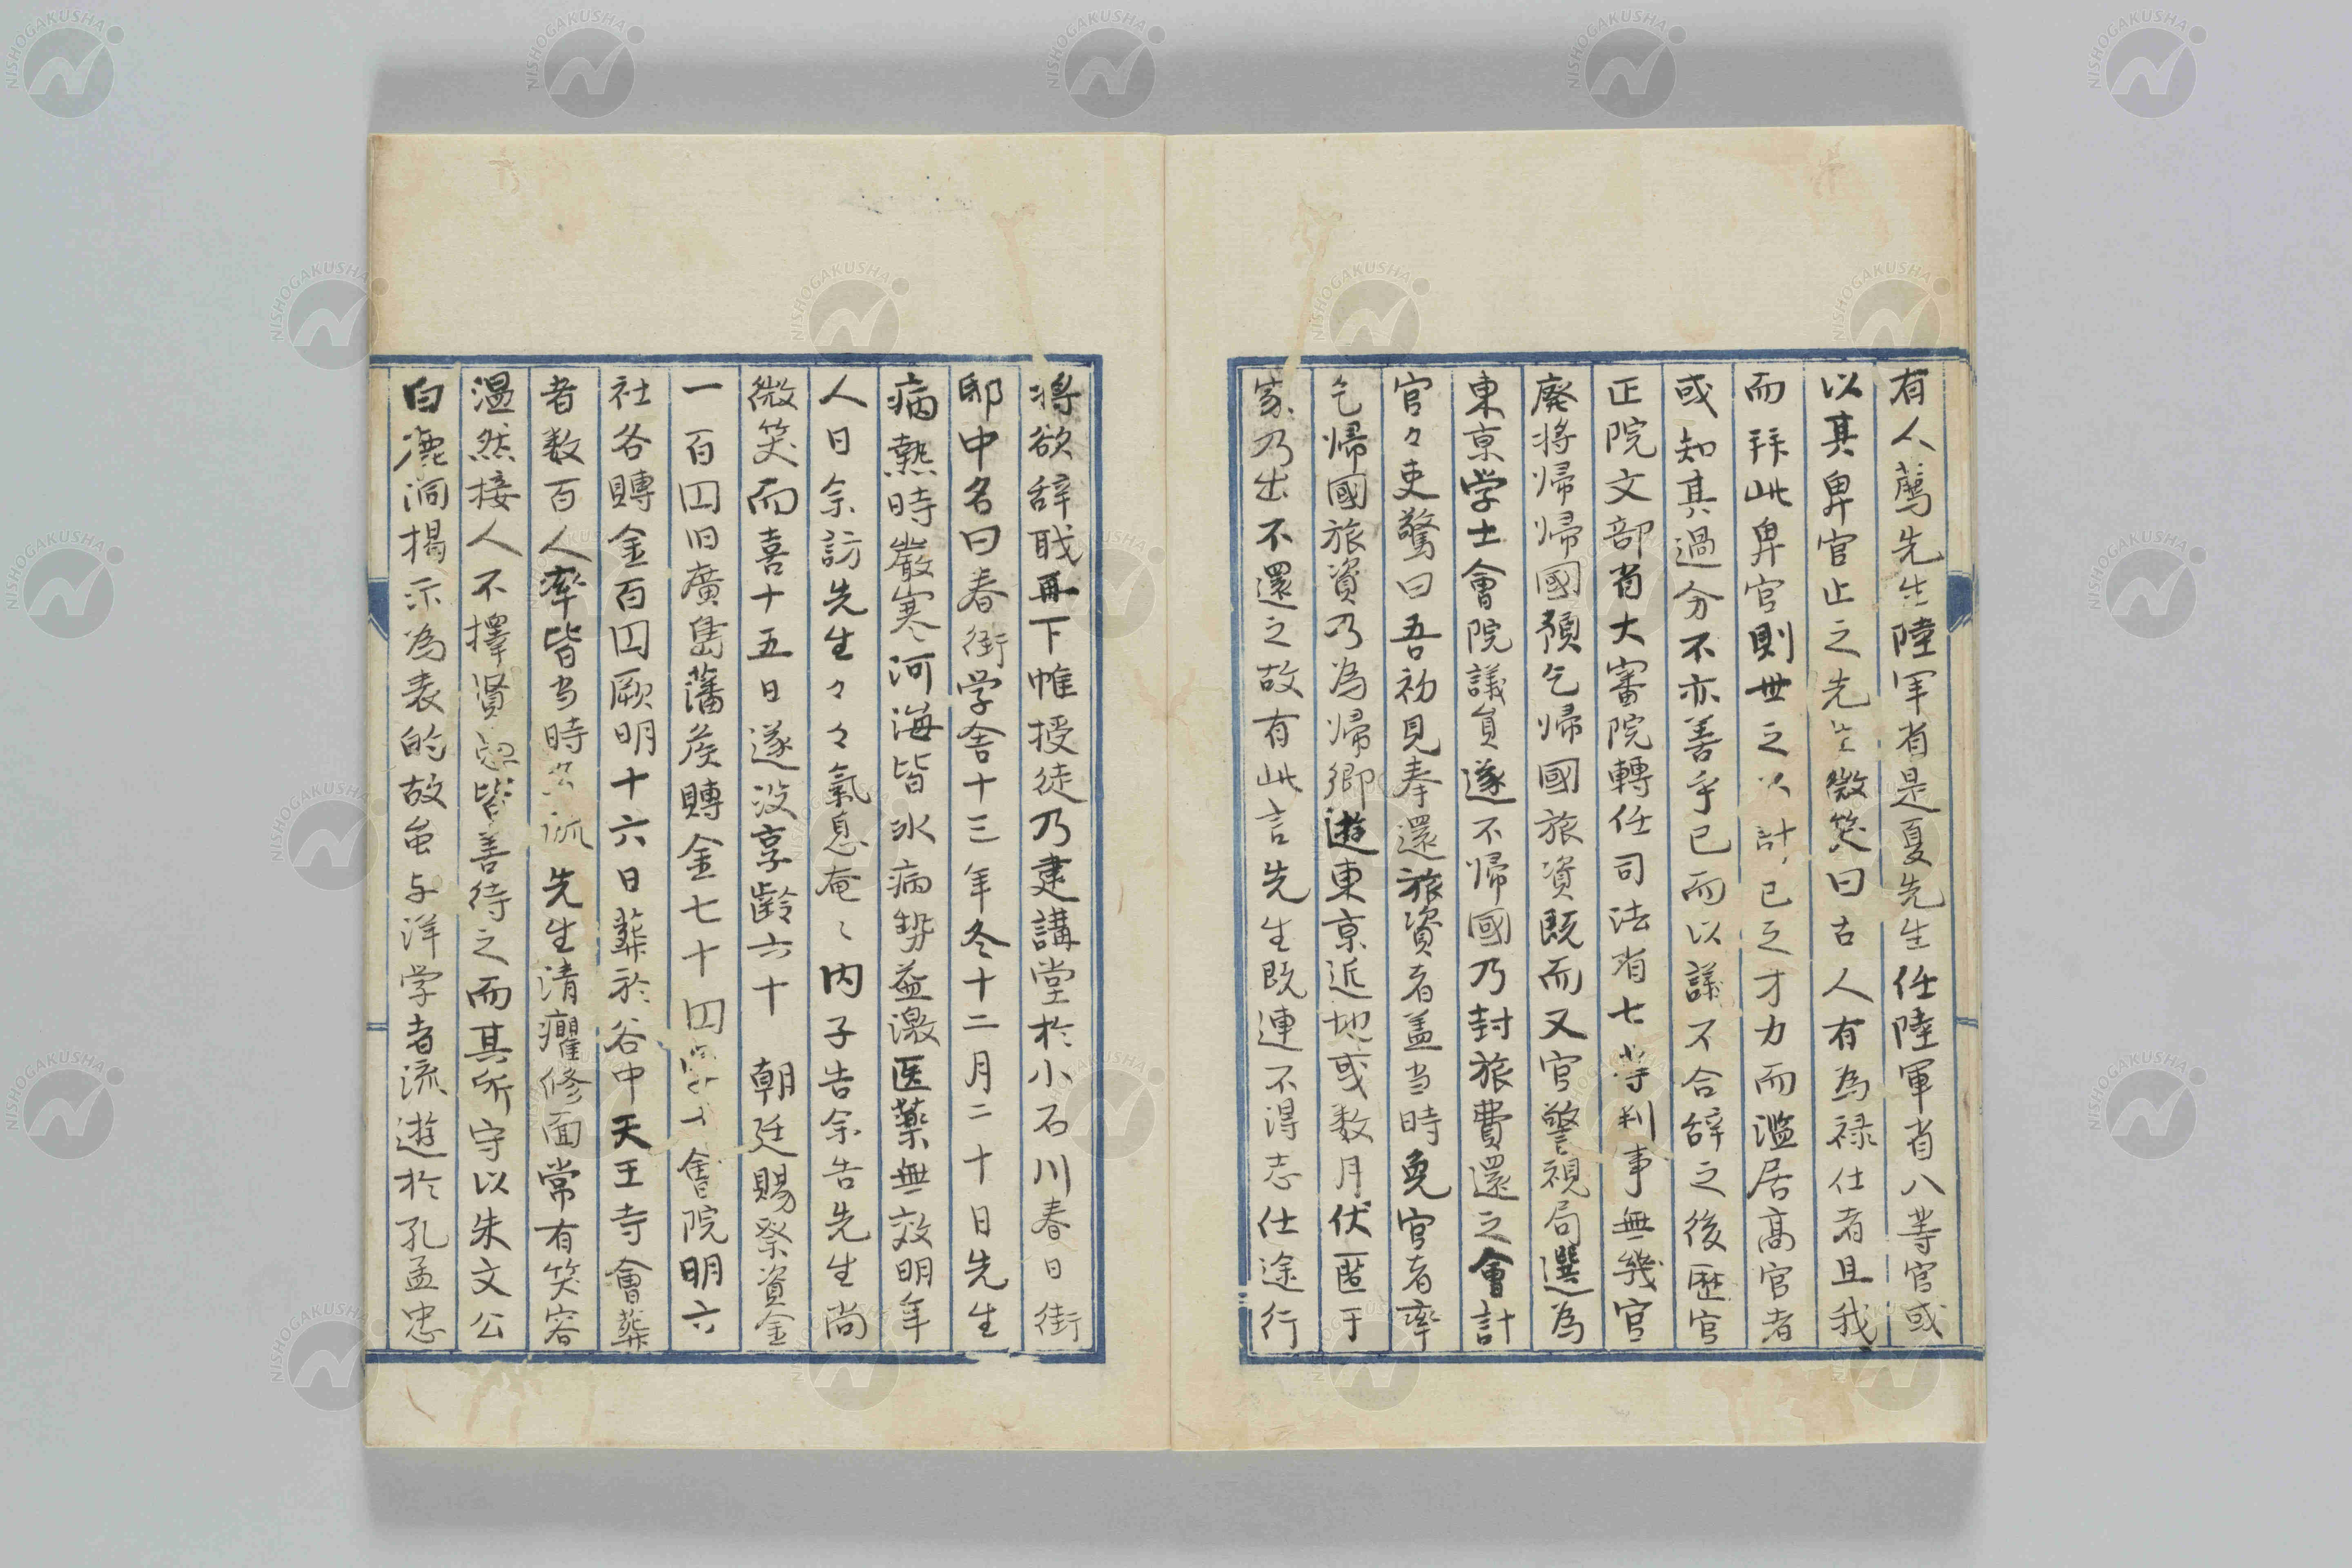 有人薦先生陸軍省是夏先生任陸軍省八等官或
以其卑官止之先生微笑曰古人有為禄仕者且我
而拜此卑官則世之以計已之才力而濫居高官者
或知其過分不亦善乎已而以議不合辞之後歴官
正院文部省大審院轉任司法省七等判事無幾官
廃将帰帰國預乞帰國旅資既而又官警視局選為
東京学士會院議員遂不帰國乃封旅費還之會計
官々吏驚曰吾初見奉還旅資者盖当時免官者率
乞帰國旅資乃為帰郷遊東京近地或数月伏匿于
家乃出不還之故有此言先生既連不得志仕途行
将欲辞職再下帷授徒乃建講堂於小石川春日街
邸中名曰春街学舎十三年冬十二月二十日先生
病熱時嚴寒河海皆氷病勢益激医薬無效明年
人日余訪先生々々氣息奄々内子告余告先生尚
微笑而喜十五日遂没享齢六十 朝廷賜祭資金
一百円旧廣島藩侯賻金七十円学士會院明六
社各賻金百円厥明十六日葬於谷中天王寺會葬
者数百人率皆当時 先生清癯修面常有笑容
温然接人不擇賢愚皆善待之而其所守以朱文公
白鹿洞掲示為表的故虽与洋学者流遊於孔孟忠
NISHOGAKUSHA